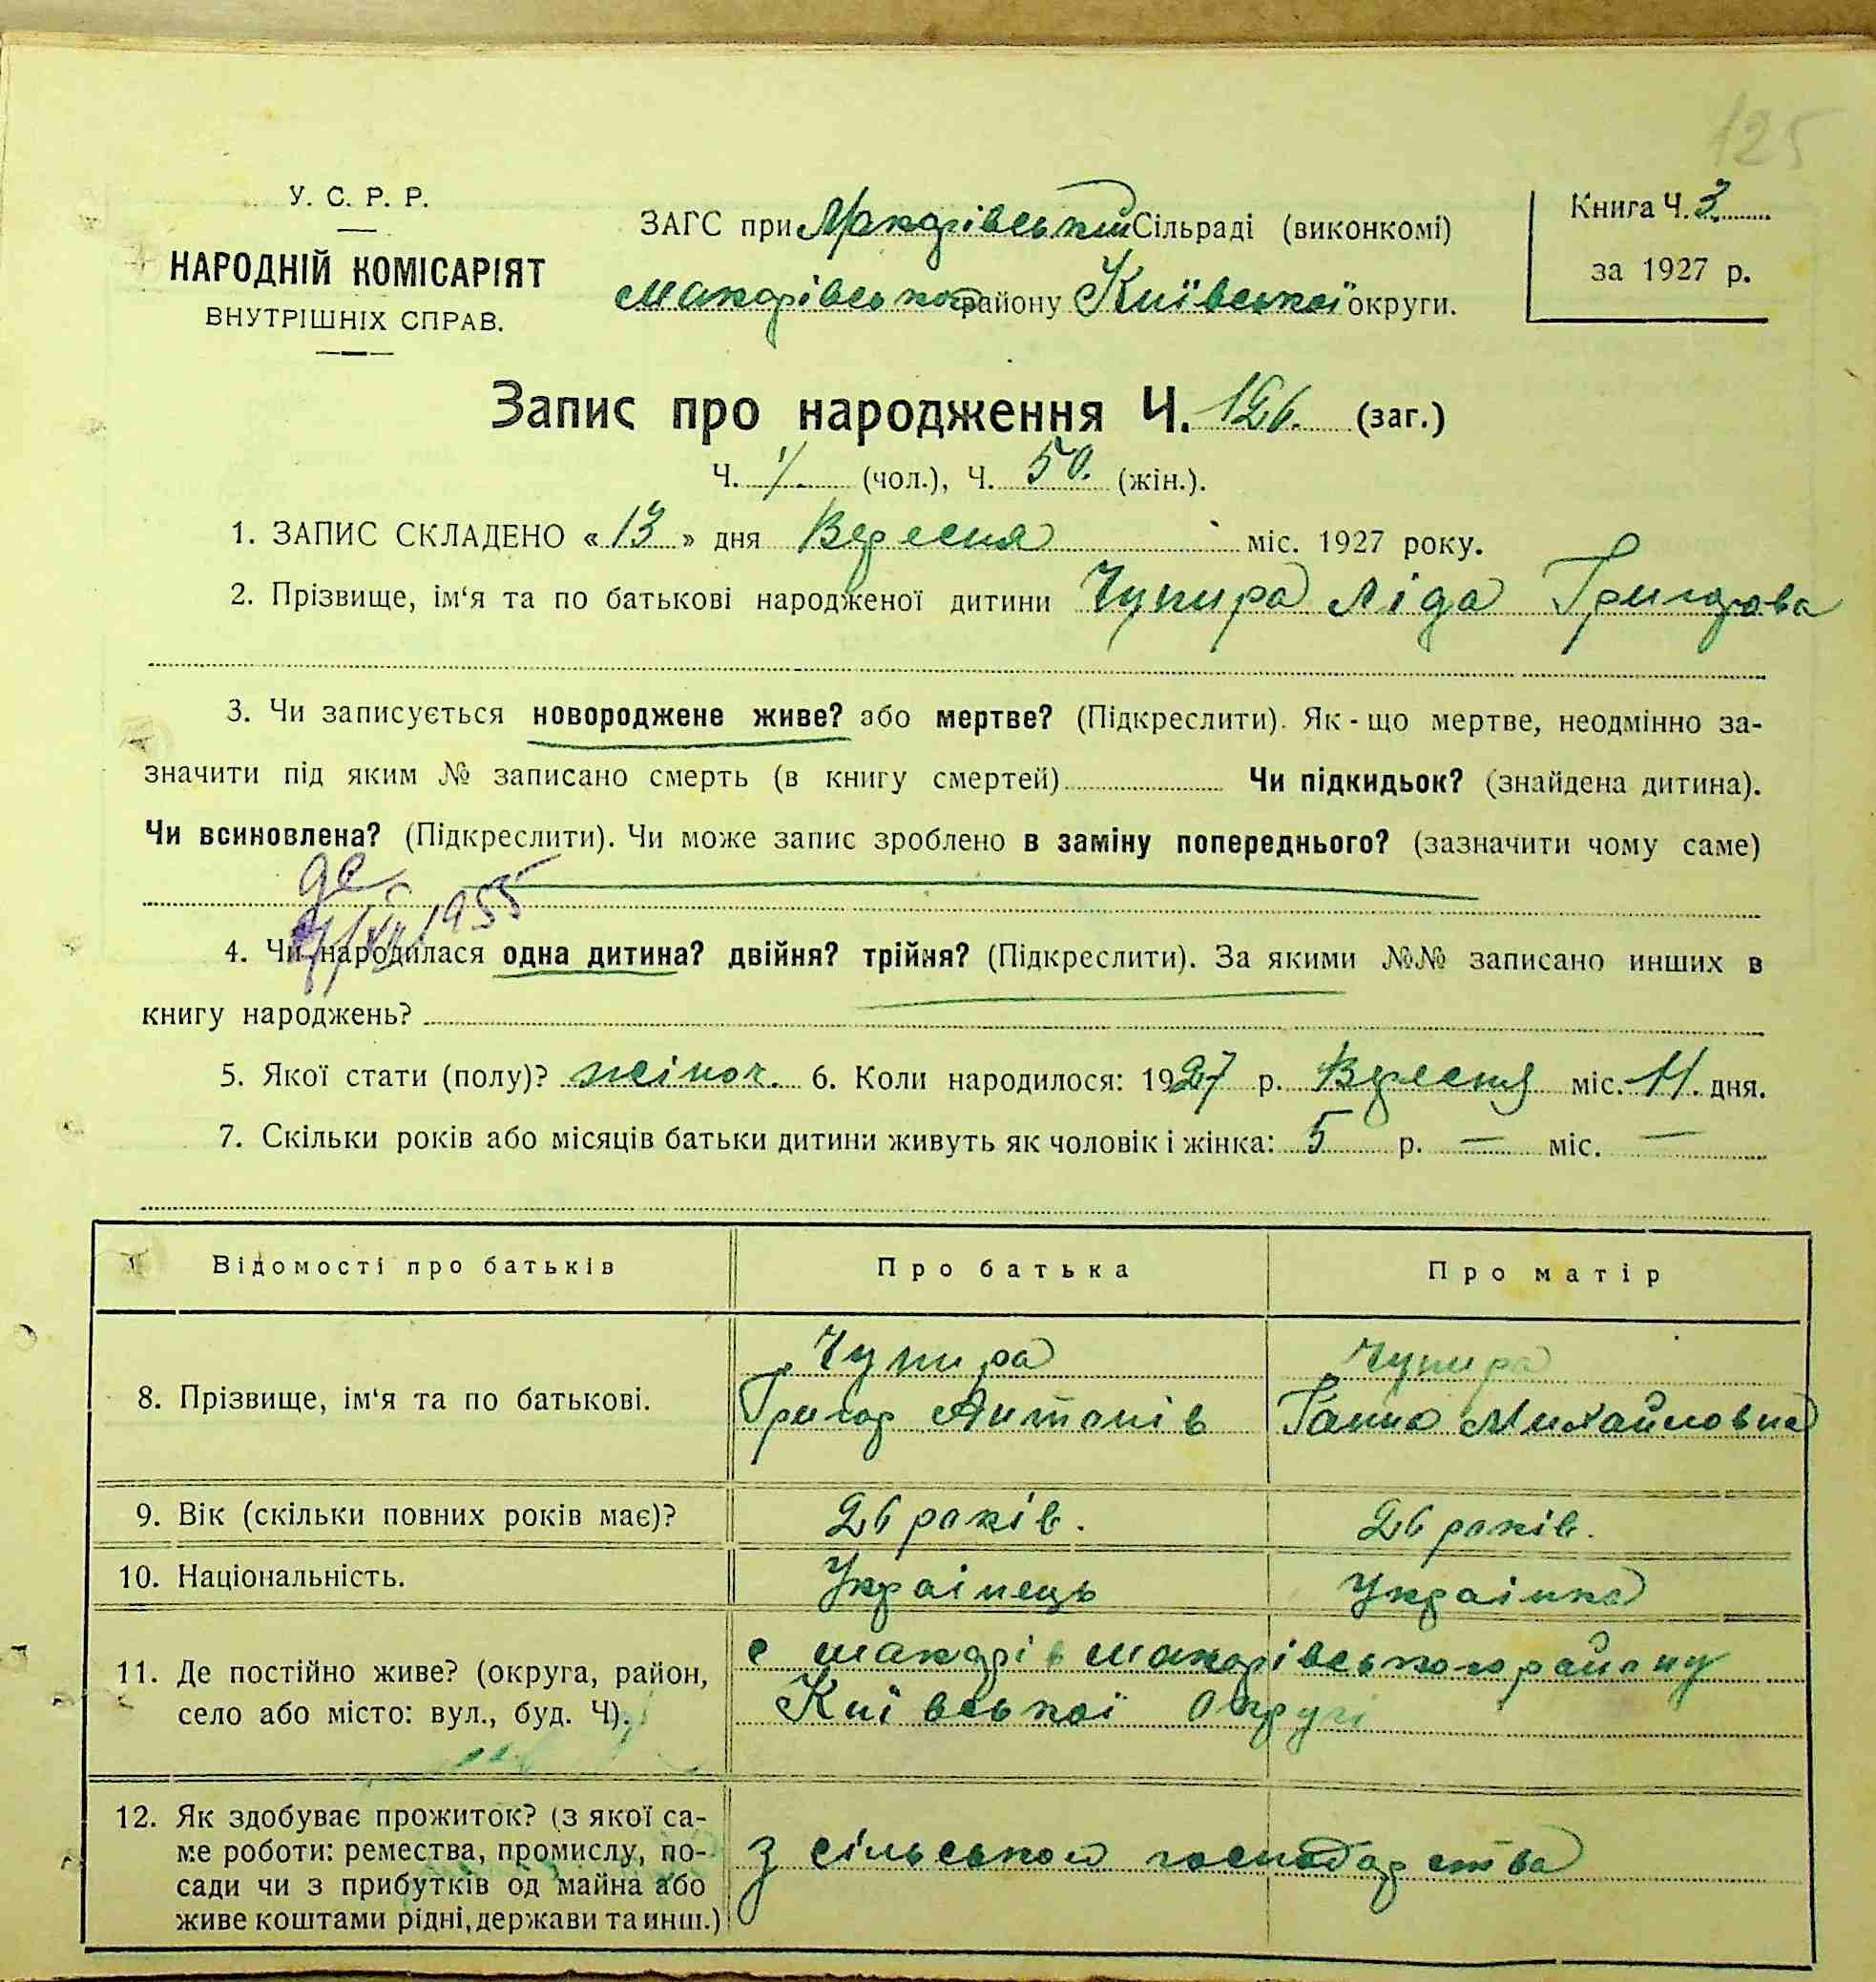 125
У. С. Р. Р.
НАРОДНІЙ КОМІСАРІЯТ
ВНУТРІШНІХ СПРАВ.
ЗАГС при Макарівській Сільраді (виконкомі)
Макарівського району Київської округи.
Книга Ч. 3.
за 1927 р.
Запис про народження Ч. 126. (заг.)
Ч. (чол.), Ч. 50. (жін.).
1. ЗАПИС СКЛАДЕНО « 13 » дня Вересня міс. 1927 року.
2. Прізвище, ім‘я та по батькові народженої дитини Чупира Ліда Григорова
3. Чи записується новороджене живе? або мертве? (Підкреслити). Як - що мертве, неодмінно за-
значити під яким № записано смерть (в книгу смертей) Чи підкидьок? (знайдена дитина).
Чи всиновлена? (Підкреслити). Чи може запис зроблено в заміну попереднього? (зазначити чому саме)
4. Чи народилася одна дитина? двійня? трійня? (Підкреслити). За якими №№ записано инших в
книгу народжень?
5. Якої стати (полу)? жіноч. 6. Коли народилося: 1927 р. Вересня міс. 11. дня.
7. Скільки років або місяців батьки дитини живуть як чоловік і жінка: 5 р. — міс. —
Відомості про батьків Про батька Про матір
8. Прізвище, ім‘я та по батькові. Чупира Григор Антонів Чупира Ганна Михайловна
9. Вік (скільки повних років має)? 26 років. 26 років.
10. Національність. Українець Українка
11. Де постійно живе? (округа, район, с Макарів Макарівського району
село або місто: вул., буд. Ч). Київської Округи
12. Як здобуває прожиток? (з якої са-
ме роботи: ремества, промислу, по- З сільського господарства
сади чи з прибутків од майна або
живе коштами рідні, держави та инш.)